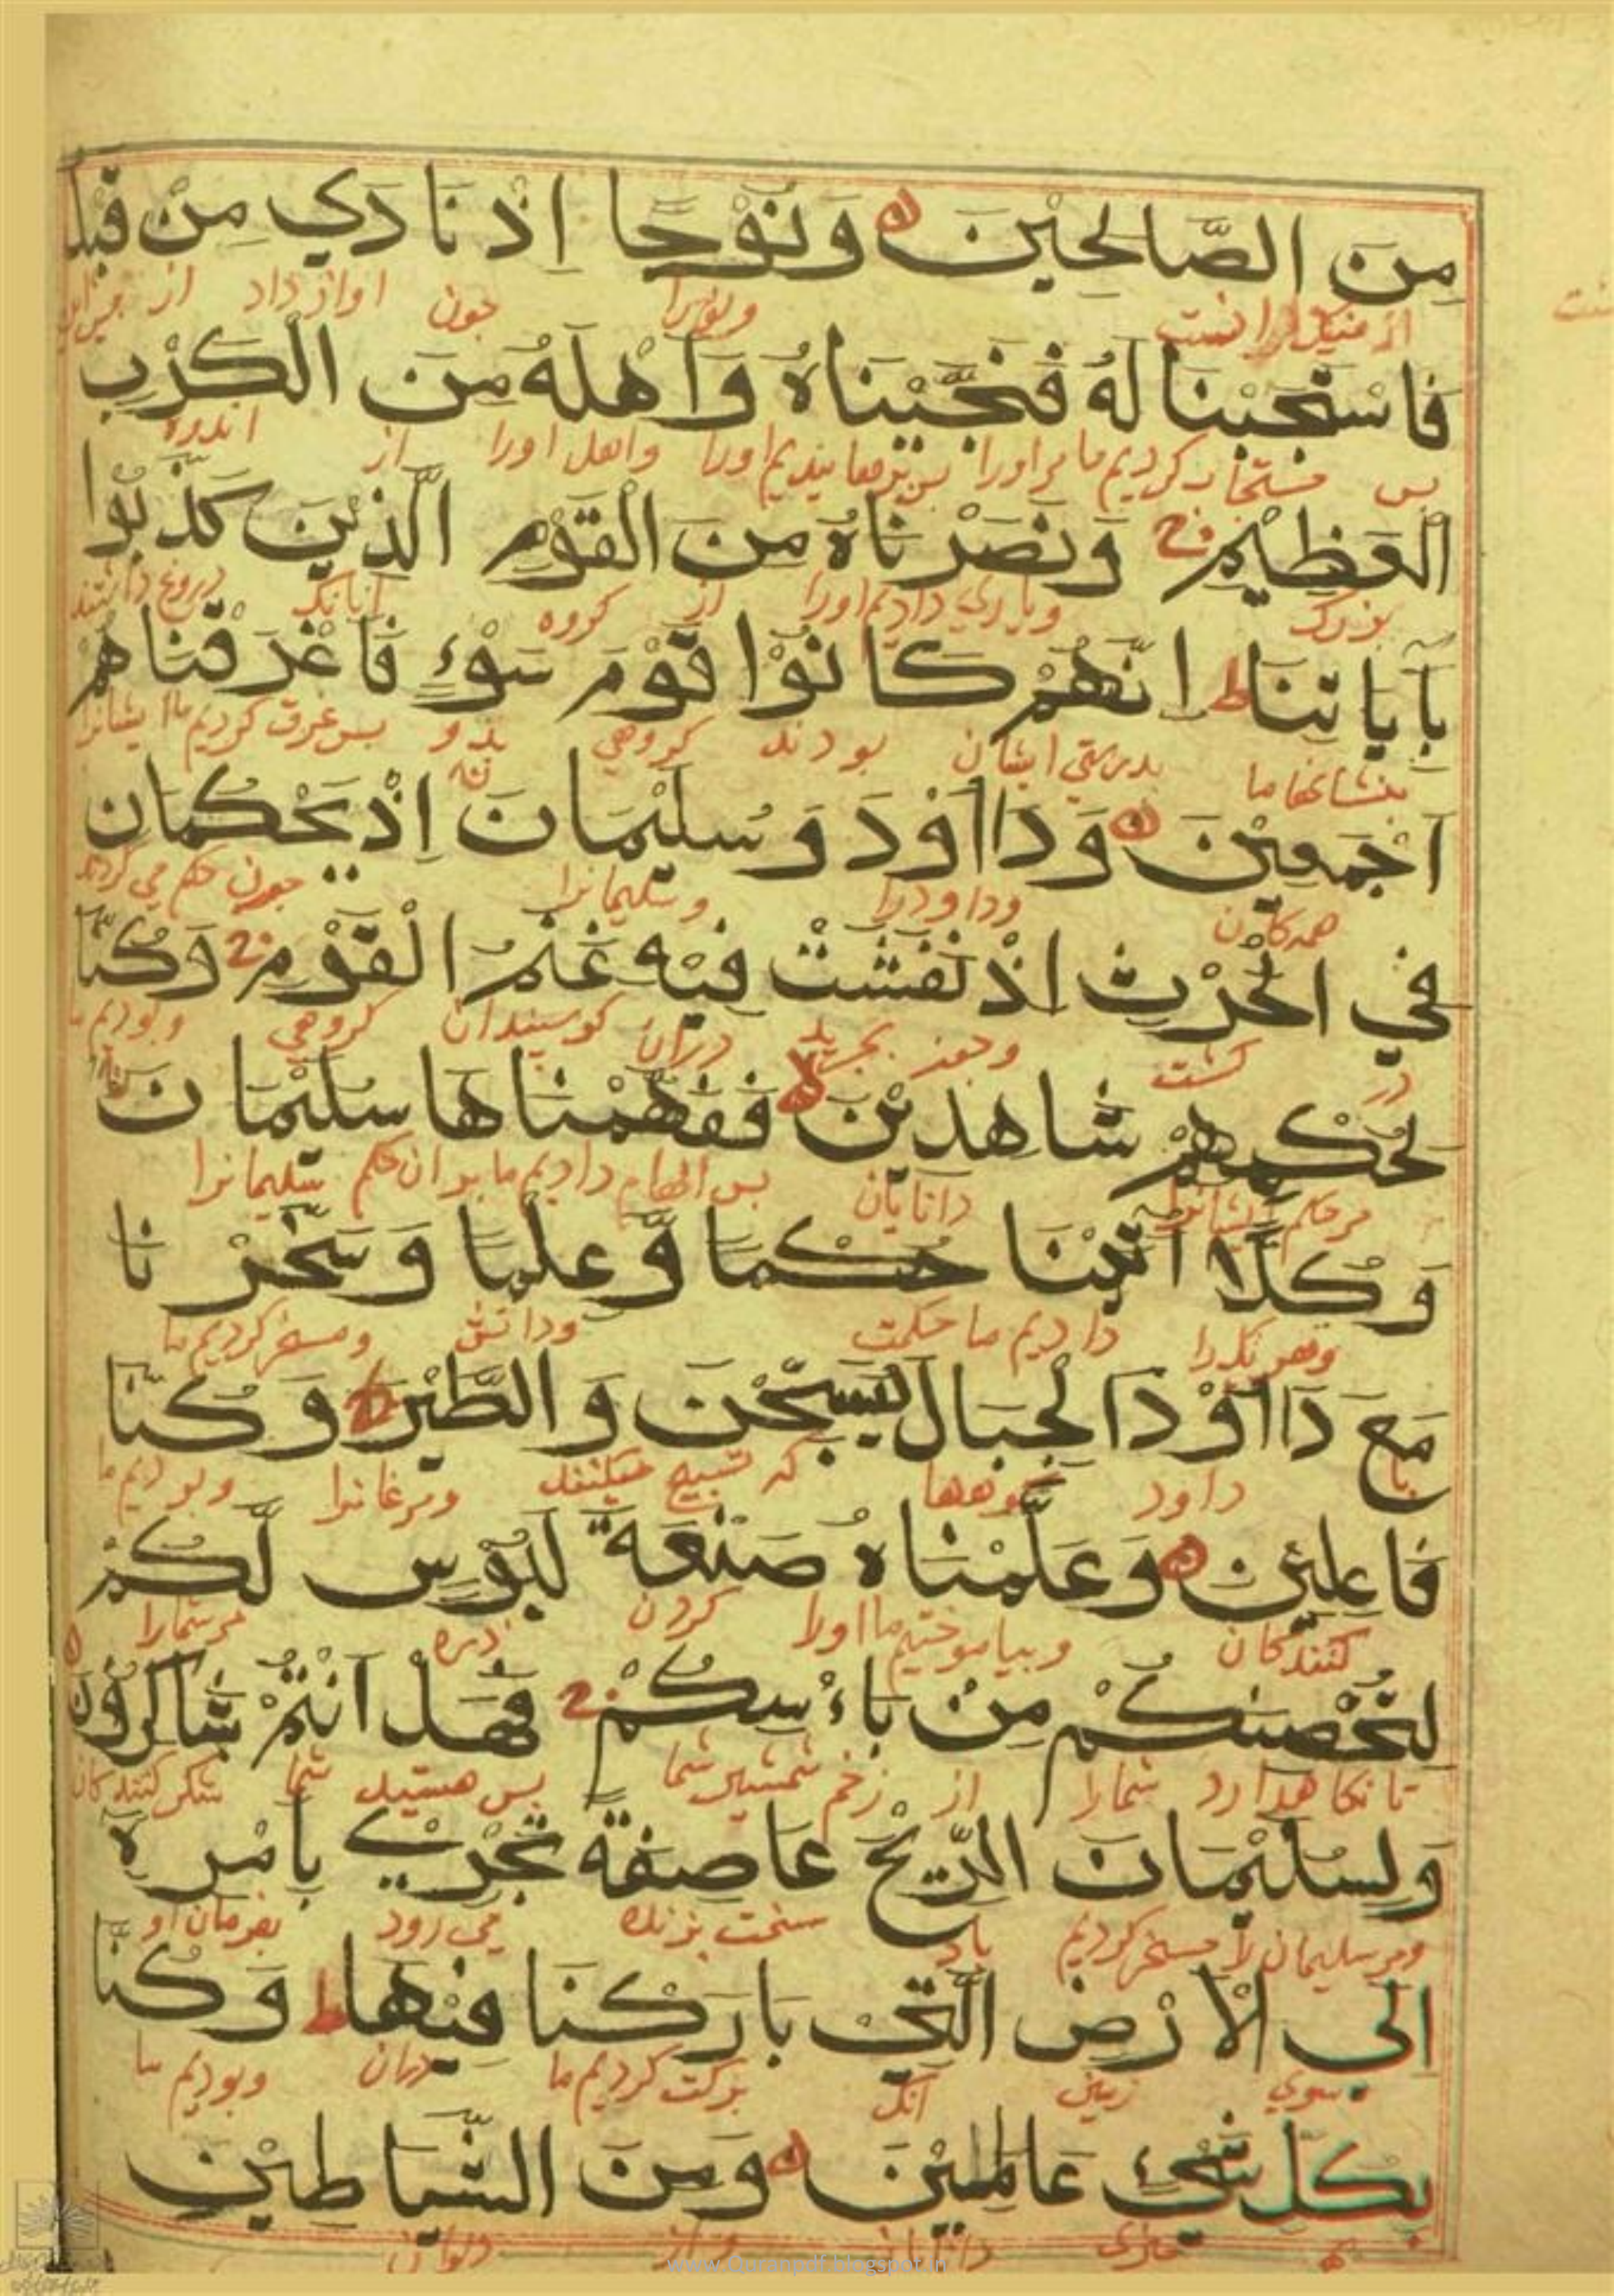 مِنَ الصَّالِحِيْنَ وَنُوْحًا اِذْ نَادٰي مِنْ قَبْلُ
از نیکان است ونوح را چون اواز داد از
فَاسْتَجَبْنَا لَهُ فَنَجَّيْنَاهُ وَاَهْلَهُ مِنَ الْكَرْبِ
پس مستجاب کردیم ما مر اورا پس برهانیدیم اورا واهل اورا از اندوه
الْعَظِيْمِ وَنَصَرْنَاهُ مِنَ الْقَوْمِ الَّذِيْنَ كَذَّبُوْا
بزرک ویاری دادیم اورا از کروه انانک دروغ داشتند
بِآيَاتِنَا ط اِنَّهُمْ كَانُوْا قَوْمَ سَوْءٍ فَاَغْرَقْنَاهُمْ
بنشانها ما بدرستی ایشان بودند کروهی بد پس غرق کردیم ما ایشانرا
اَجْمَعِيْنَ وَدَاأوٗدَ وَسُلَيْمَانَ اِذْ يَحْكُمَانِ
همه کان وداود را وسلیمانرا چون حکم می کردند
فِي الْحَرْثِ اِذْ نَفَشَتْ فِيْهِ غَنَمُ الْقَوْمِ وَكُنَّا
در کشت وچون بچرید دران کوسپندان کروهی وبودیم ما
لِحُكْمِهِمْ شَاهِدِيْنَ لا فَفَهَّمْنَاهَا سُلَيْمَانَ
مر حکم ایشانرا دانایان پس الهام دادیم ما بدان حکم سلیمانرا
وَكُلًّا آتَيْنَا حُكْمًا وَّعِلْمًا وَسَخَّرْنَا
وهر یک را دادیم ما حکمت ودانش ومسخر کردیم ما
مَعَ دَاأوٗدَ الْجِبَالَ يُسَبِّحْنَ وَالطَّيْرَ ط وَكُنَّا
با داود کوهها که تسبیح میکنند ومرغانرا وبودیم ما
فَاعِلِيْنَ وَعَلَّمْنَاهُ صَنْعَةَ لَبُوْسٍ لَّكُمْ
کنندکان وبیاموختیم ما اورا کردن زره مر شمارا
لِتُحْصِنَكُمْ مِنْ بَاْءسِكُمْ فَهَلْ اَنْتُمْ شَاكِرُوْنَ
تا نکاهدارد شمارا از زخم شمشیر شما پس هستید شما شکر کنندکان
وَلِسُلَيْمَانَ الرِّيْحَ عَاصِفَةً تَجْرِيْ بِاَمْرِهٖ
ومر سلیمان را مسخر کردیم باد سخت وزنده می رود بفرمان او
اِلَى الْاَرْضِ الَّتِيْ بَارَكْنَا فِيْهَا ط وَكُنَّا
سوی زمین آنک برکت کردیم ما دران وبودیم ما
بِكُلِّ شَيْءٍ عَالِمِيْنَ وَمِنَ الشَّيَاطِيْنِ
چیزی دانایان واز دیوان
www.Quranpdf.blogspot.in